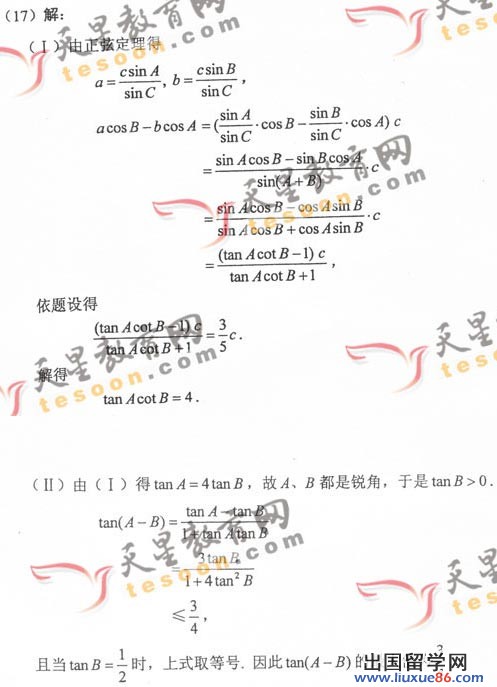 (17)解:
(Ⅰ)由正弦定理得
a = c sin A / sin C, b = c sin B / sin C,
a cos B − b cos A = (sin A / sin C · cos B − sin B / sin C · cos A) c
= (sin A cos B − sin B cos A) / sin(A + B) · c
= (sin A cos B − cos A sin B) / (sin A cos B + cos A sin B) · c
= (tan A cot B − 1) c / (tan A cot B + 1),
依题设得
(tan A cot B − 1) c / (tan A cot B + 1) = 3/5 c.
解得
tan A cot B = 4.
(Ⅱ)由(Ⅰ)得 tan A = 4 tan B,故 A、B 都是锐角,于是 tan B > 0.
tan(A − B) = (tan A − tan B) / (1 + tan A tan B)
= 3 tan B / (1 + 4 tan² B)
≤ 3/4,
且当 tan B = 1/2 时,上式取等号.因此 tan(A − B) 的
天星教育网
tesoon.com
天星教育网
tesoon.com
天星教育网
tesoon.com
天星教育网
tesoon.com
出国留学网
www.liuxue86.com